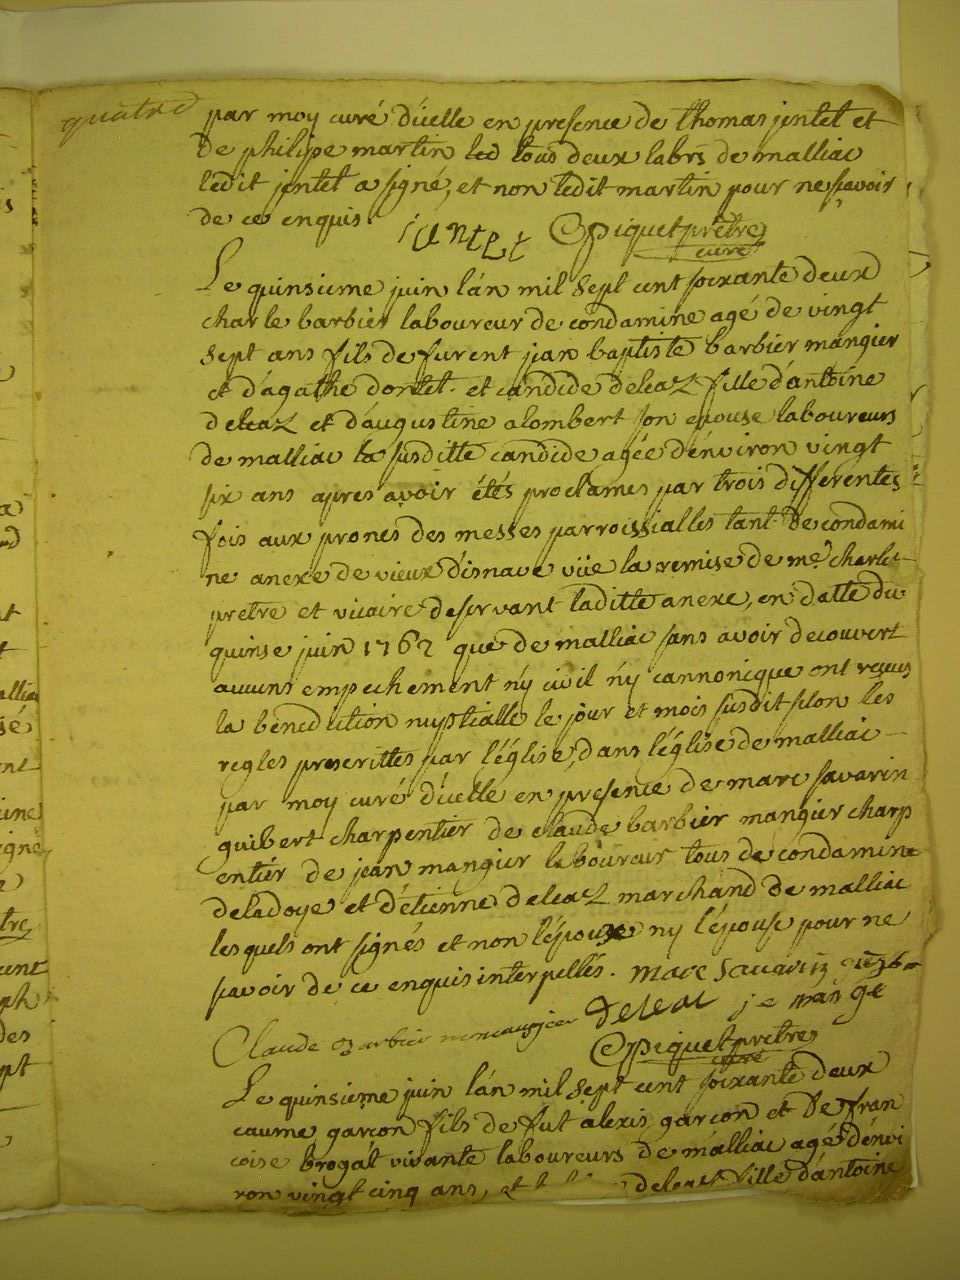 quatre
par moy curé d'icelle en presence de thomas jentet et
de philipe martin tous deux labrs de malliac
ledit jentet a signé, et non ledit martin pour ne sçavoir
de ce enquis.
jentet Cpiquet prêtre
curé
Le quinsieme juin l'an mil sept cent soixante deux
charle barbier laboureur de condamine agé de vingt
sept ans fils de furent jean baptiste barbier mangier
et d'agathe dortet. et candide deleaz fille d'antoine
deleaz et d'augustine alombert son epouse laboureurs
de malliac la susditte candide agée d'environ vingt
six ans apres avoir étés proclamés par trois differentes
fois aux prones des messes parroissialles tant de condami
ne anexe de vieux d'isnave vüe la remise de me charlet
pretre et vicaire deservant laditte anexe, en datte du
quinse juin 1762 que de malliac sans avoir decouvert
aucuns empechement n'y civil n'y cannonique ont reçeus
la bénédiction nuptialle le jour et mois susdit selon les
regles prescrittes par l'église, dans l'église de malliac
par moy curé d'icelle en présence de marc savarin
guibert charpentier de claude barbier mangier charp
entier de jean mangier laboureur tous de condamine
deladoye et d'étienne deleaz marchand de malliac
lesquels ont signés et non l'époux ny l'épouse pour ne
sçavoir de ce enquis interpellés. marc savarin
Claude barbier deleac je mange
Cpiquet prêtre
curé
Le quinsieme juin l'an mil sept cent soixante deux
caume garçon fils de fut alexis garcon et de fran
coise brogat vivante laboureurs de malliac agé d'envi
ron vingt cinq ans, et deleaz fille d'antoine